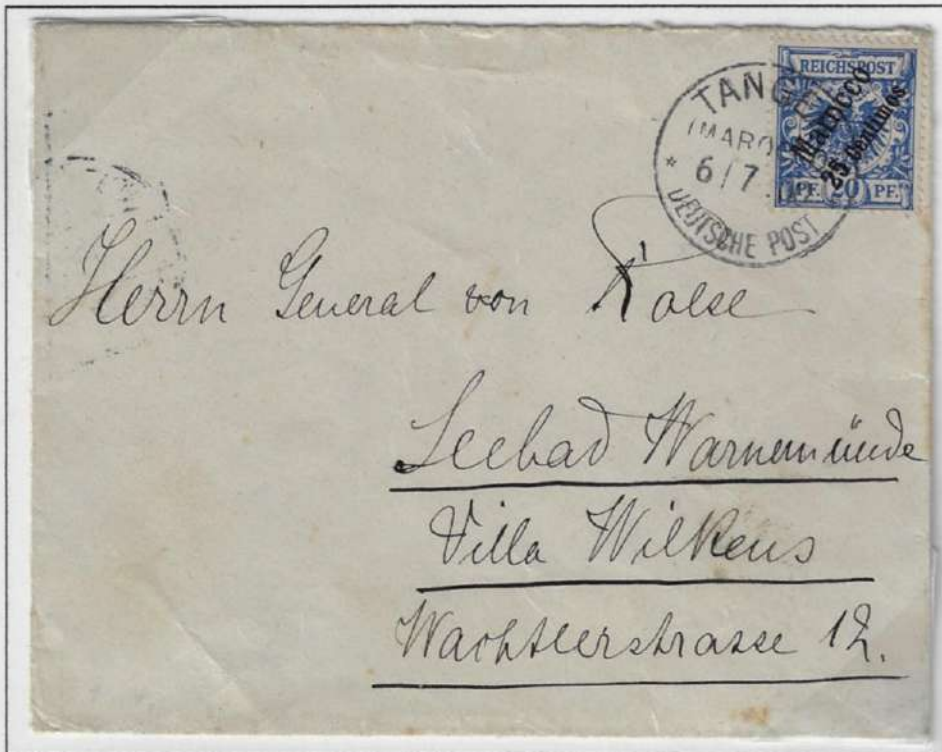 REICHSPOST
Marocco
25 Centimos
PF. 20 PF.
TANG
(MARO
* 6/7
DEUTSCHE POST
Herrn General von
Seebad Warnemünde
Villa Wilkens
Wachtlerstrasse 12.